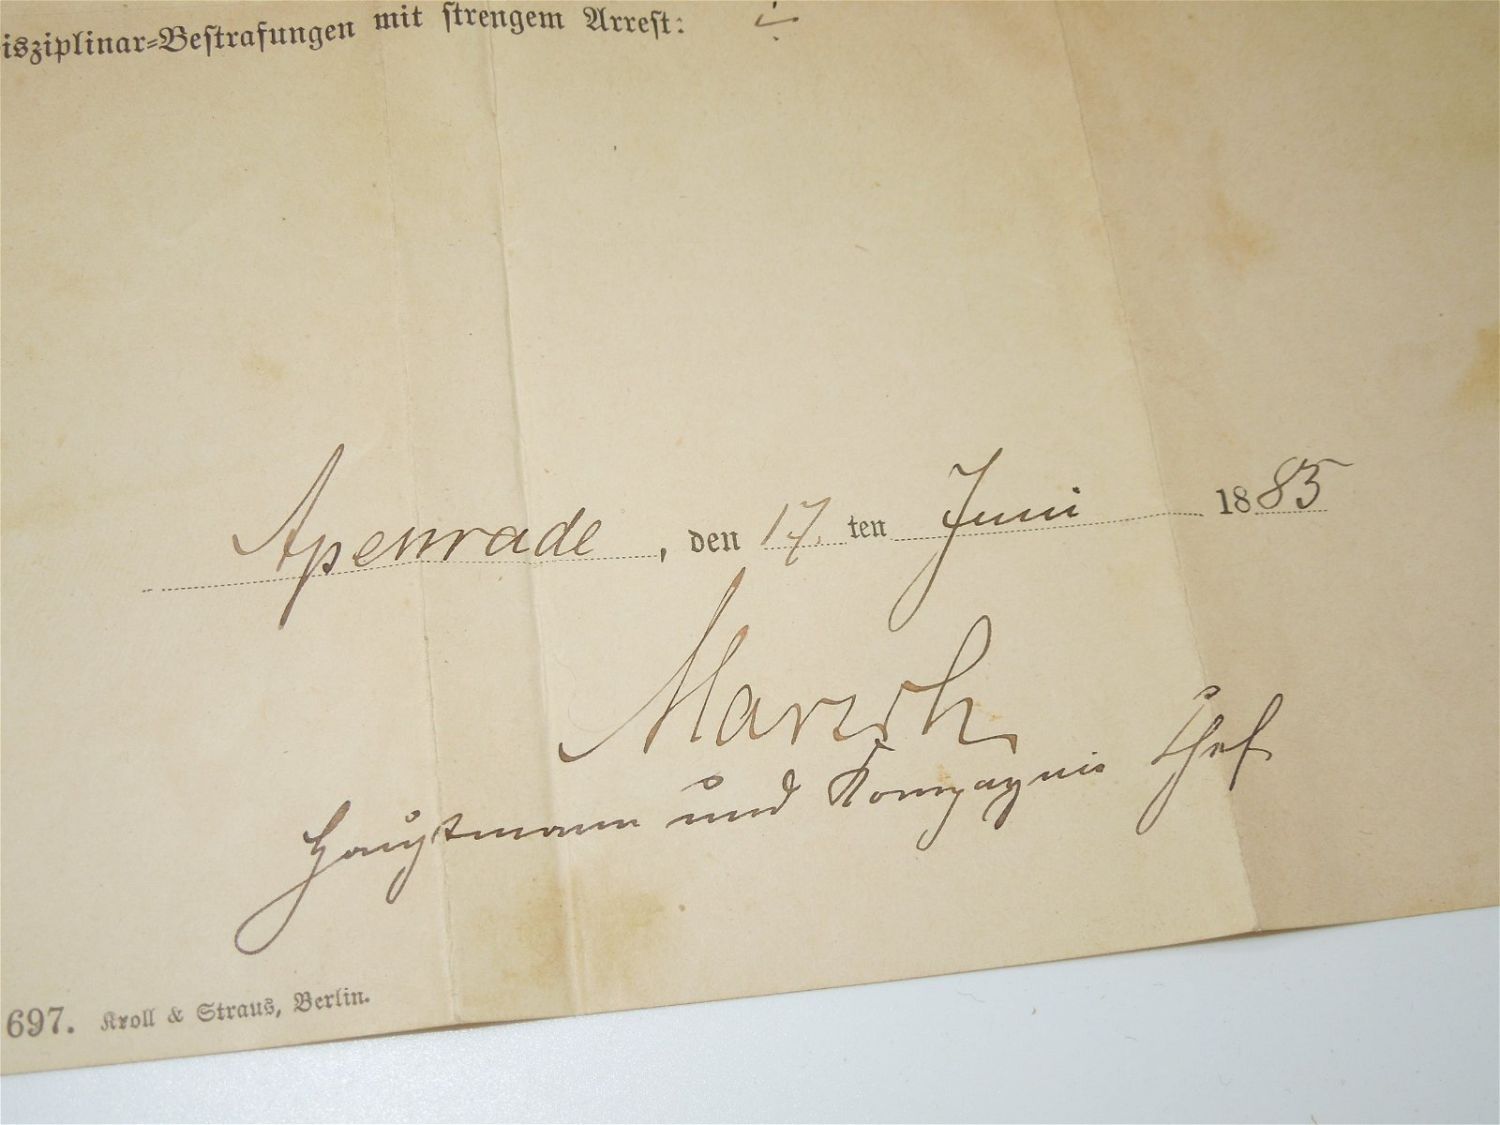 isziplinar-Bestrafungen mit strengem Arrest: ./.
Apenrade, den 17. ten Juni 1885
Marsch
Hauptmann und Kompagnie Chef
697. Kroll & Straus, Berlin.